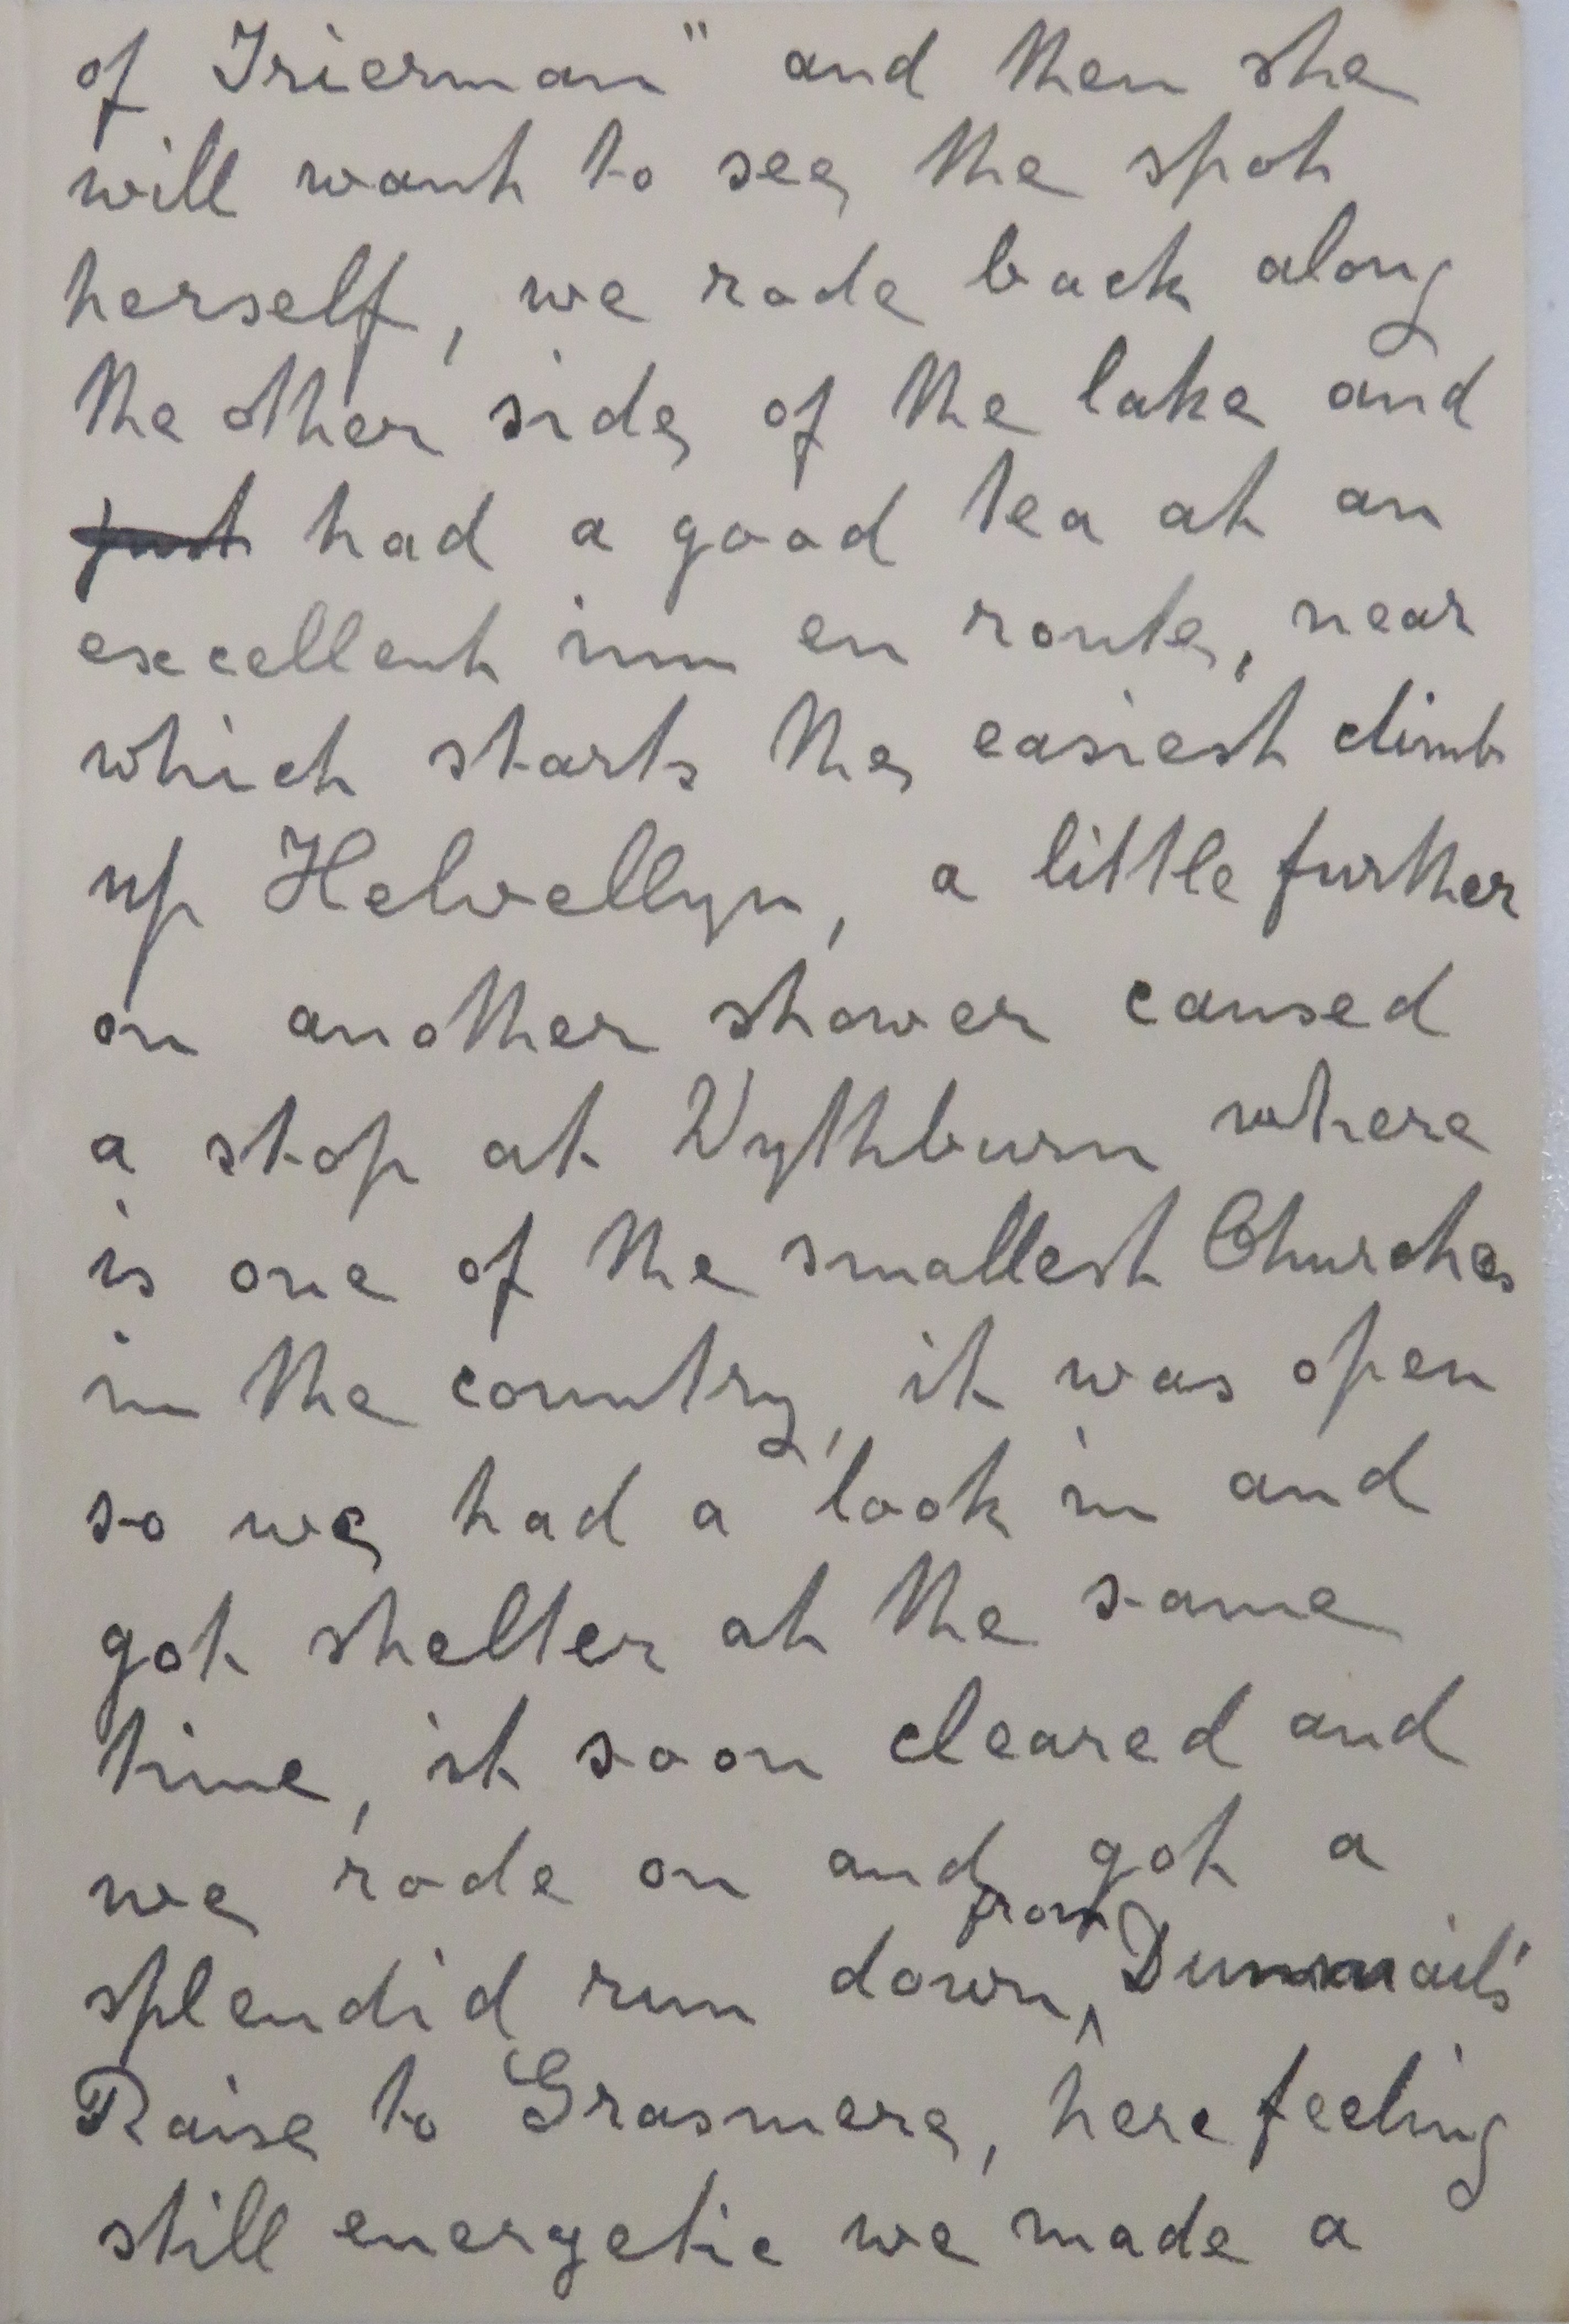 of Trierman" and then she
will want to see the spot
herself, we rode back along
the other side of the lake and
just had a good tea at an
excellent inn en route, near
which starts the easiest climb
up Helvellyn, a little further
on another shower caused
a stop at Wythburn where
is one of the smallest Churches
in the country, it was open
so we had a look in and
got shelter at the same
time, it soon cleared and
we rode on and got a
splendid run down from Dunmail's
Raise to Grasmere, here feeling
still energetic we made a